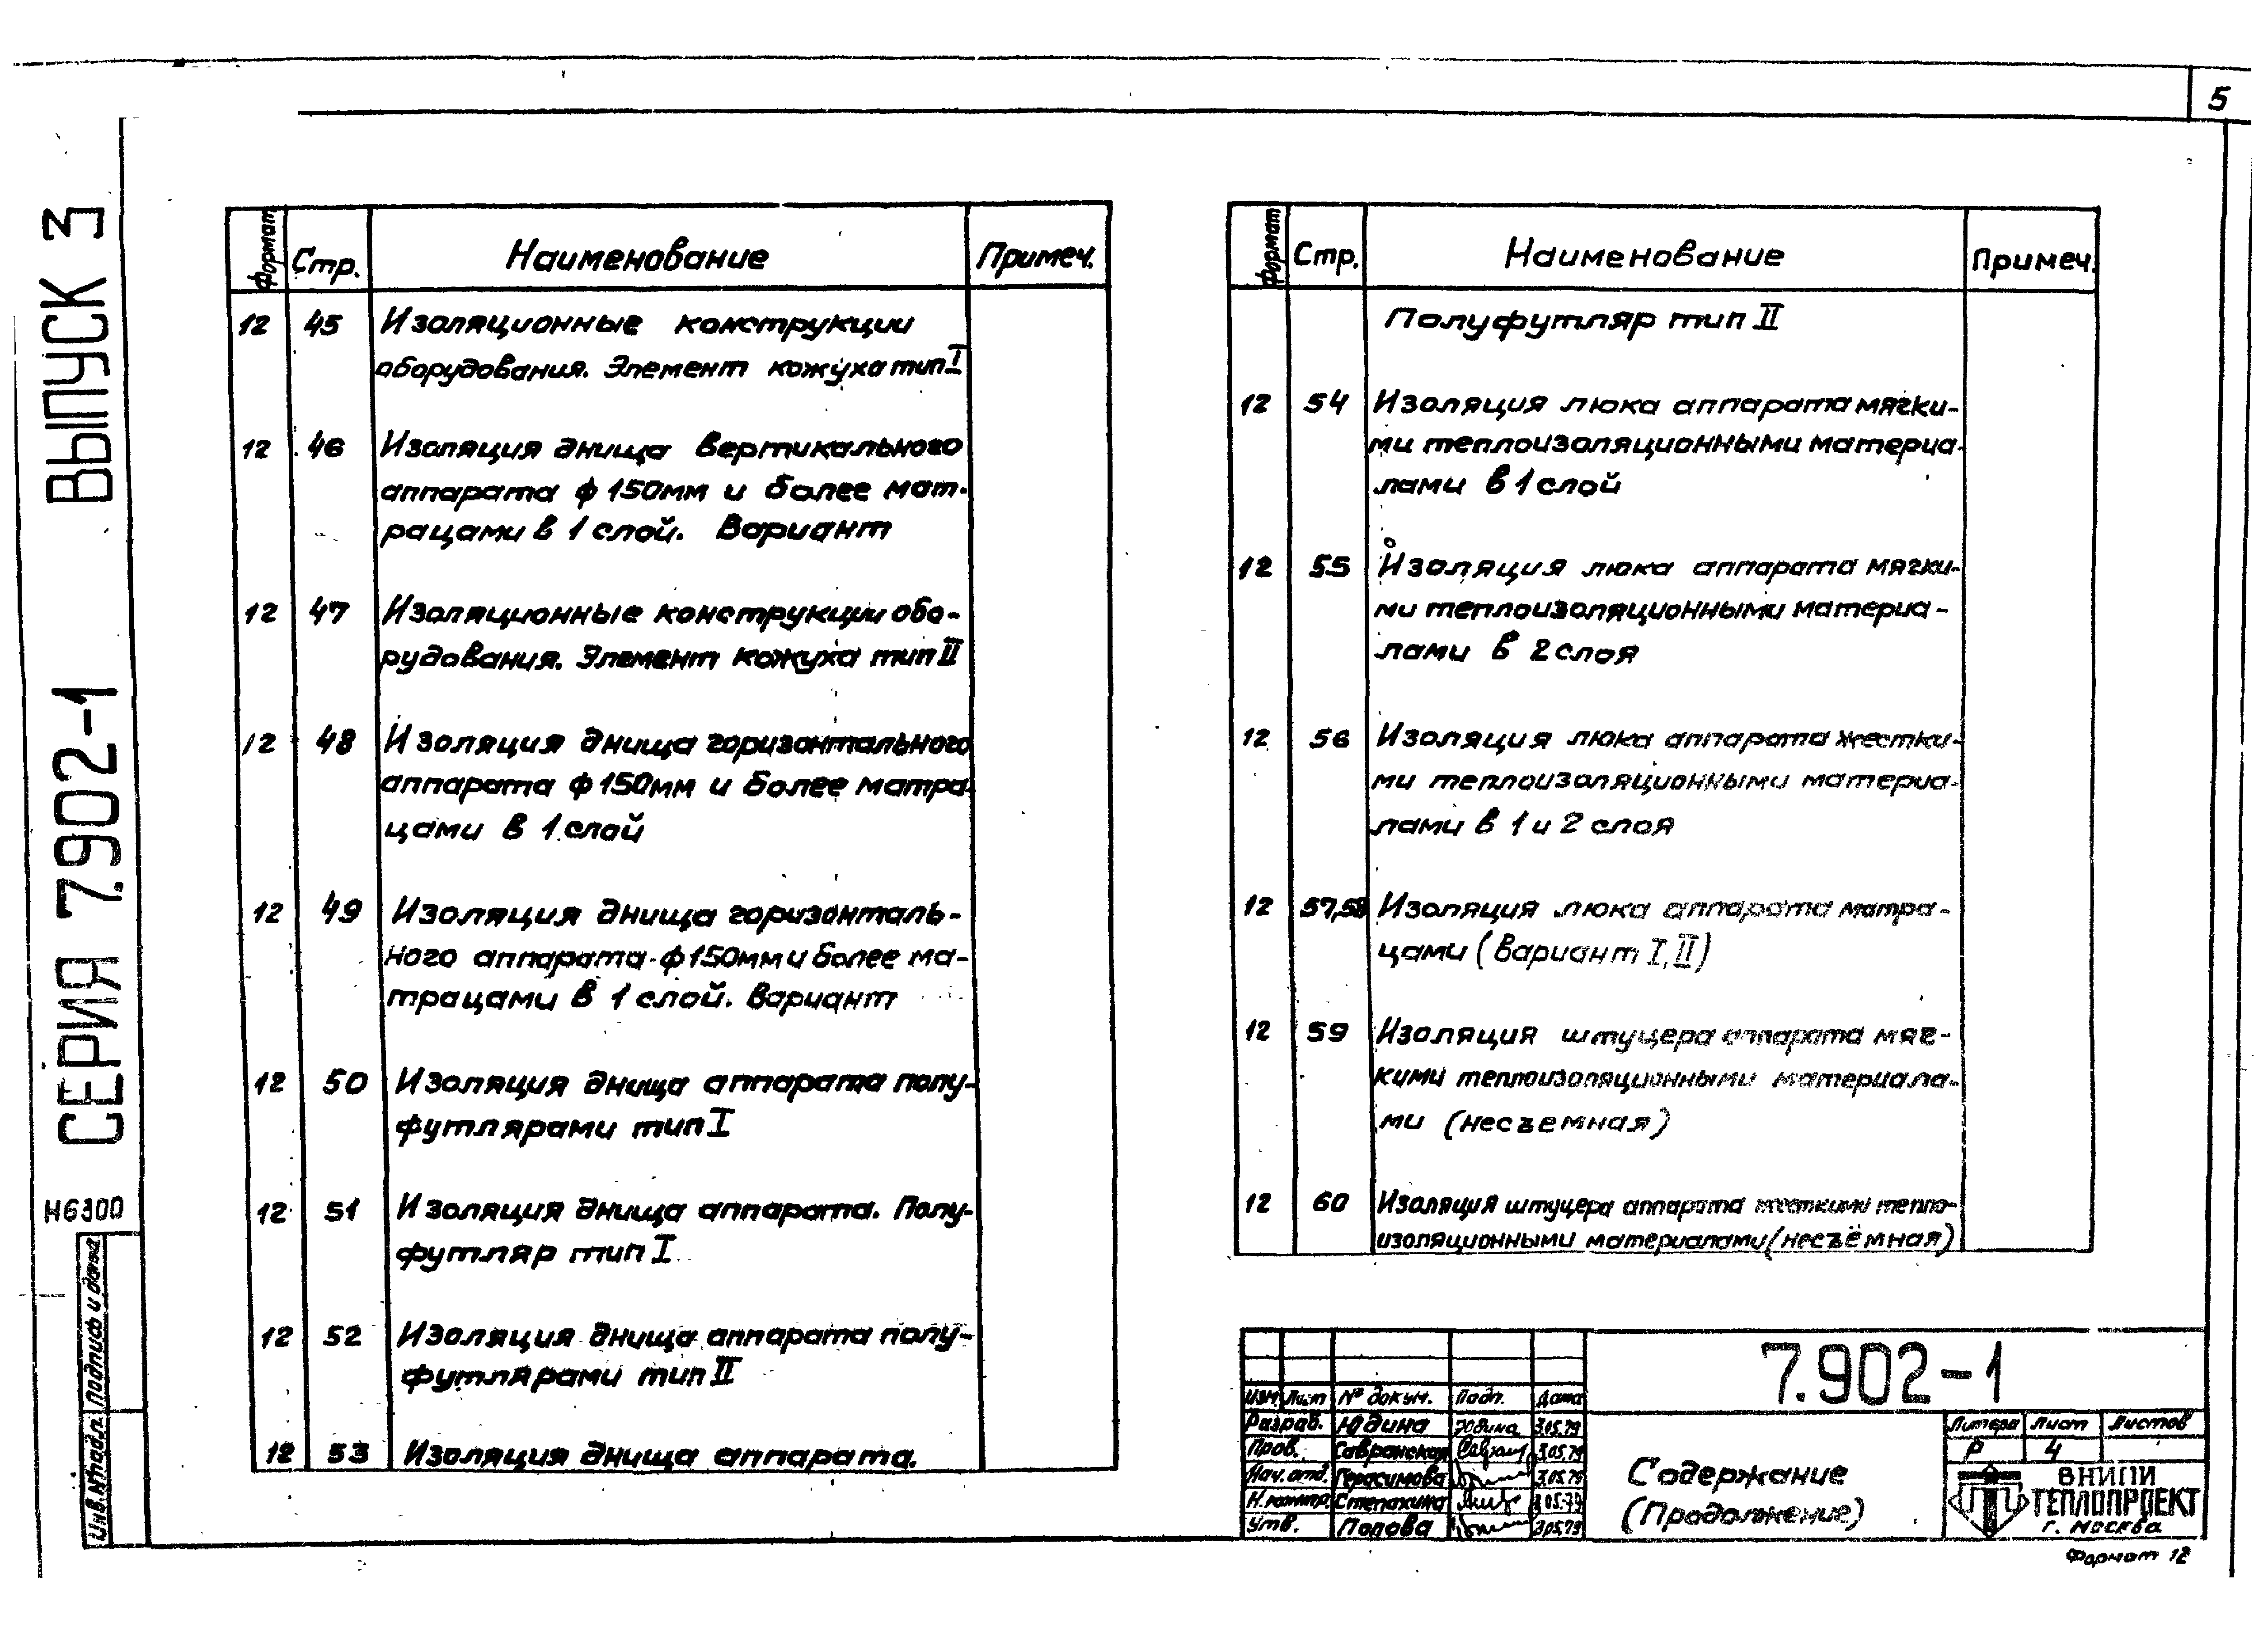 5
СЕРИЯ 7.902-1 ВЫПУСК 3
Н6300
Инв.№подл. Подпись и дата
Формат Стр. Наименование Примеч.
12 45 Изоляционные конструкции
оборудования. Элемент кожуха тип I
12 46 Изоляция днища вертикального
аппарата ф 150мм и более мат-
рацами в 1 слой. Вариант
12 47 Изоляционные конструкции обо-
рудования. Элемент кожуха тип II
12 48 Изоляция днища горизонтального
аппарата ф 150мм и более матра-
цами в 1 слой
12 49 Изоляция днища горизонталь-
ного аппарата ф150мм и более ма-
трацами в 1 слой. Вариант
12 50 Изоляция днища аппарата полу-
футлярами тип I
12 51 Изоляция днища аппарата. Полу-
футляр тип I
12 52 Изоляция днища аппарата полу-
футлярами тип II
12 53 Изоляция днища аппарата.
Формат Стр. Наименование Примеч.
Полуфутляр тип II
12 54 Изоляция люка аппарата мягки-
ми теплоизоляционными материа-
лами в 1 слой
12 55 Изоляция люка аппарата мягки-
ми теплоизоляционными материа-
лами в 2 слоя
12 56 Изоляция люка аппарата жестки-
ми теплоизоляционными материа-
лами в 1 и 2 слоя
12 57,58 Изоляция люка аппарата матра-
цами (Вариант I, II)
12 59 Изоляция штуцера аппарата мяг-
кими теплоизоляционными материала-
ми (несъемная)
12 60 Изоляция штуцера аппарата жесткими тепло-
изоляционными материалами (несъёмная)
7.902-1
Изм. Лист № докум. Подп. Дата
Разраб. Юдина Юдина 3.05.79
Пров. Савранская 3.05.79
Нач. отд. Герасимова 3.05.79
Н. контр. Степахина 3.05.79
Утв. Попова 3.05.79
Содержание
(Продолжение)
Литера Лист Листов
Р 4
ВНИПИ
ТЕПЛОПРОЕКТ
г. Москва
Формат 12